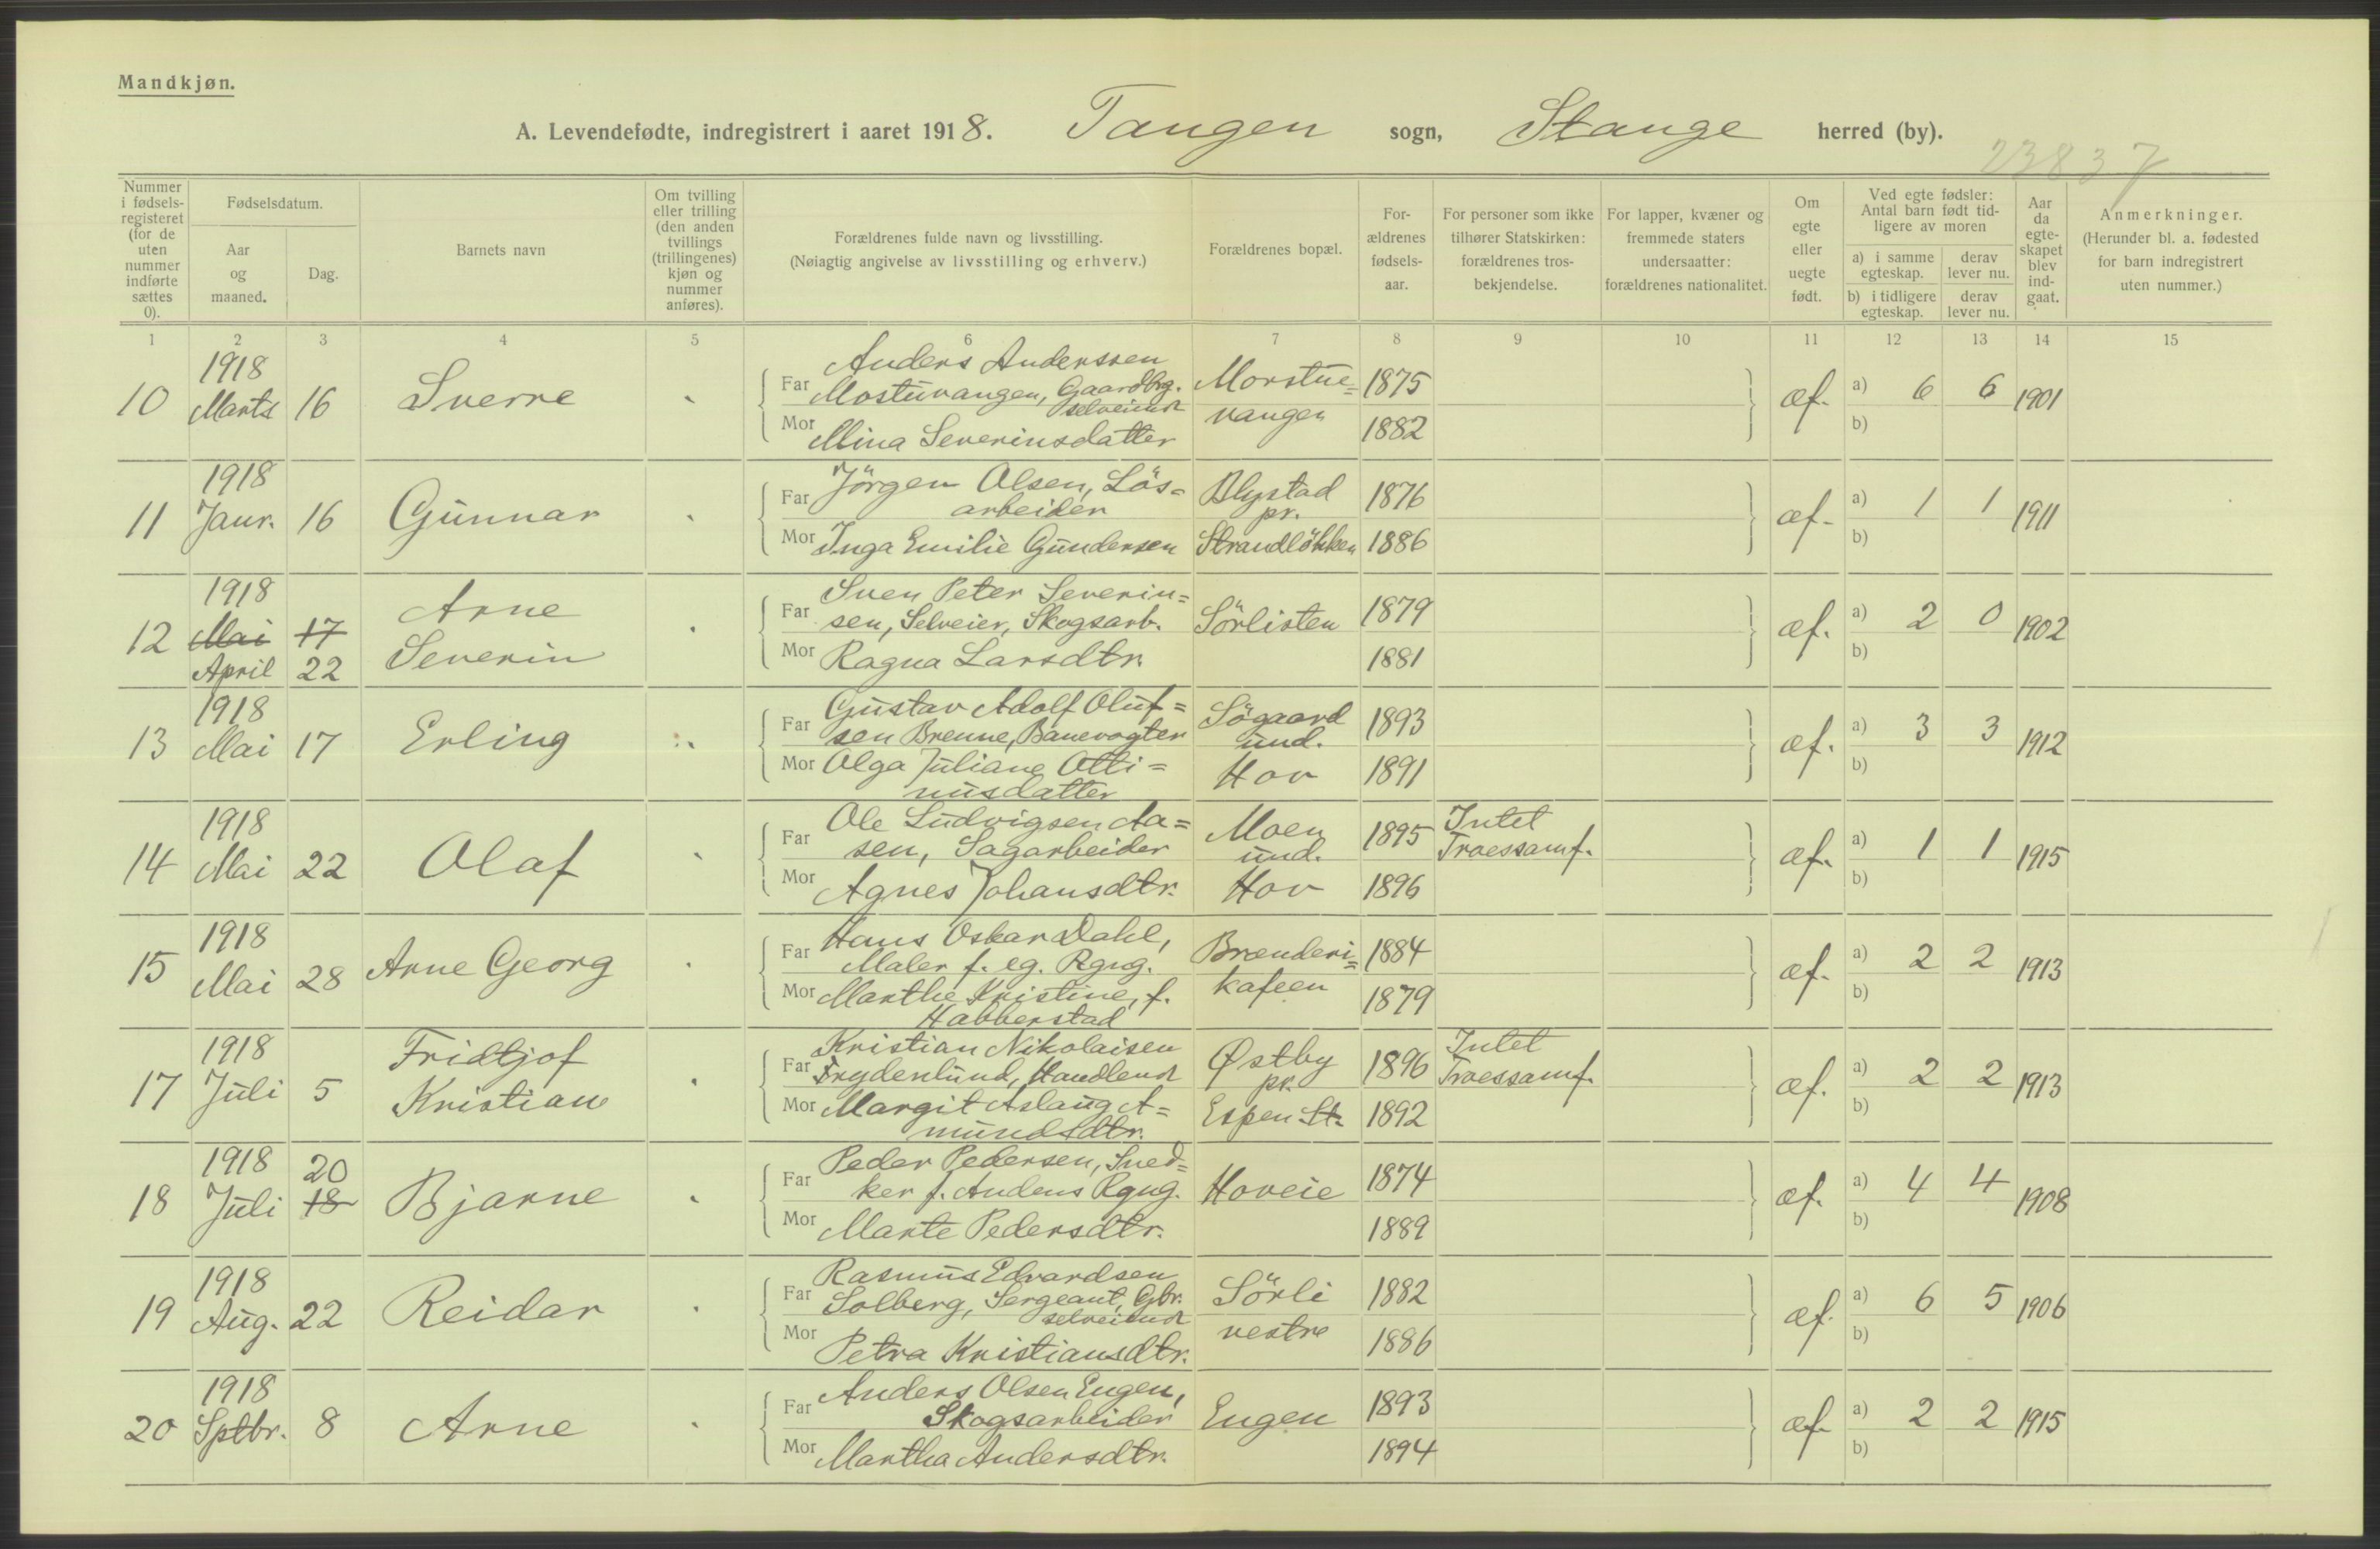 Mandkjøn.
A. Levendefødte, indregistrert i aaret 1918. Tangen sogn, Stange herred (by).
23837
Nummer i fødsels-registeret (for de uten nummer indførte sættes 0).
Fødselsdatum.
Aar og maaned.
Dag.
Barnets navn
Om tvilling eller trilling (den anden tvillings (trillingenes) kjøn og nummer anføres).
Forældrenes fulde navn og livsstilling.
(Nøiagtig angivelse av livsstilling og erhverv.)
Forældrenes bopæl.
For-ældrenes fødsels-aar.
For personer som ikke tilhører Statskirken: forældrenes tros-bekjendelse.
For lapper, kvæner og fremmede staters undersaatter: forældrenes nationalitet.
Om egte eller uegte født.
Ved egte fødsler: Antal barn født tid-ligere av moren
a) i samme egteskap.
derav lever nu.
b) i tidligere egteskap.
derav lever nu.
Aar da egte-skapet blev ind-gaat.
Anmerkninger.
(Herunder bl. a. fødested for barn indregistrert uten nummer.)
1 2 3 4 5 6 7 8 9 10 11 12 13 14 15
1918
10 Marts 16 Sverre
Far Anders Anderssen
Mostuvangen, Gaardbrg.
selveiende
Mor Mina Severinsdatter
Morstue=
vangen
1875
1882
æf. a) 6 6 1901
b)
1918
11 Janr. 16 Gunnar
Far Jörgen Olsen, Lös=
arbeider
Mor Inga Emilie Gundersen
Blystad
pr.
Strandlökken
1876
1886
æf. a) 1 1 1911
b)
1918
12 Mai 17 Arne
April 22 Severin
Far Sven Peter Severin=
sen, Selveier, Skogsarb.
Mor Ragna Larsdtr.
Sörlisten
1879
1881
æf. a) 2 0 1902
b)
1918
13 Mai 17 Erling
Far Gustav Adolf Oluf=
sen Brenne, Banevogter
Mor Olga Juliane Otti=
nusdatter
Sögaard
und.
Hov
1893
1891
æf. a) 3 3 1912
b)
1918
14 Mai 22 Olaf
Far Ole Ludvigsen Aa=
sen, Sagarbeider
Mor Agnes Johansdtr.
Moen
und.
Hov
1895
1896
Intet
Troessamf.
æf. a) 1 1 1915
b)
1918
15 Mai 28 Arne Georg
Far Hans Oskar Dahl,
Maler f. eg. Rgng.
Mor Marthe Kristine, f.
Habberstad
Brænderi=
kafeen
1884
1879
æf. a) 2 2 1913
b)
1918
17 Juli 5 Fridtjof
Kristian
Far Kristian Nikolaisen
Frydenlund, Handlende
Mor Margit Aslaug A=
mundsdtr.
Østby
pr.
Espen St.
1896
1892
Intet
Troessamf.
æf. a) 2 2 1913
b)
1918 20
18 Juli 18 Bjarne
Far Peder Pedersen, Sned=
ker f. Andens Rgng.
Mor Marte Pedersdtr.
Hoveie
1874
1889
æf. a) 4 4 1908
b)
1918
19 Aug. 22 Reidar
Far Rasmus Edvardsen
Solberg, Sergeant, Gbr.
selveiende
Mor Petra Kristiansdtr.
Sörli
vestre
1882
1886
æf. a) 6 5 1906
b)
1918
20 Sptbr. 8 Arne
Far Anders Olsen Engen,
Skogsarbeider
Mor Martha Andersdtr.
Engen
1893
1894
æf. a) 2 2 1915
b)